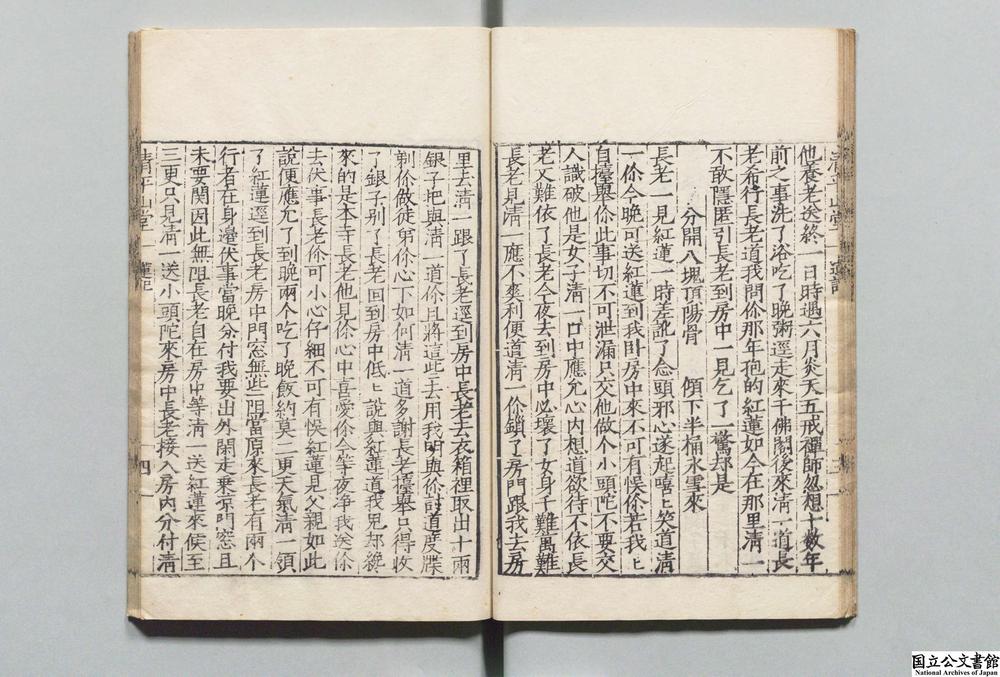 他養老送終一日時遇六月炎天五戒禪師忽想十數年
前之事洗了浴吃了晚粥逕走來千佛閣後來清一道長
老希行長老道我問你那年抱的紅蓮如今在那里清一
不敢隱匿引長老到房中一見乞了一驚却是
分開八塊頂陽骨　傾下半桶氷雪來
長老一見紅蓮一時差訛了念頭邪心遂起嘻〻笑道清
一你今晚可送紅蓮到我卧房中來不可有悞你若我〻
自擡舉你此事切不可泄漏只交他做个小頭陀不要交
人識破他是女子清一口中應允心內想道欲待不依長
老又難依了長老今夜去到房中必壞了女身千難萬難
長老見清一應不爽利便道清一你鎖了房門跟我去房
里去清一跟了長老逕到房中長老去衣箱裡取出十兩
銀子把與清一道你且將這些去用我明與你討道度牒
剃你做徒弟你心下如何清一道多謝長老擡舉只得收
了銀子別了長老回到房中低〻說與紅蓮道我兒却纔
來的是本寺長老他見你心中喜愛你今等夜淨我送你
去伏事長老你可小心仔細不可有悞紅蓮見父親如此
說便應允了到晚兩个吃了晚飯約莫二更天氣清一領
了紅蓮逕到長老房中門窓無些阻當原來長老有兩个
行者在身邊伏事當晚分付我要出外閑走乗凉門窓且
未要関因此無阻長老自在房中等清一送紅蓮來候至
三更只見清一送小頭陀來房中長老接入房內分付清
清平山堂　蓮記　四
国立公文書館
National Archives of Japan